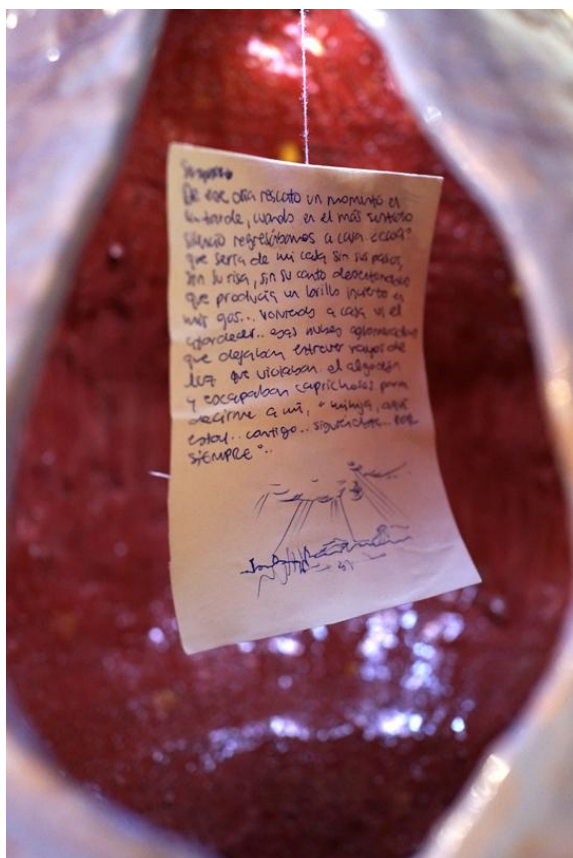 De ese día rescato un momento en
la tarde, cuando en el más
silencio regresábamos a casa ¿casa?
que sería de mi casa sin sus pasos,
sin su risa, sin su canto
que producía un brillo en
mis .. volviendo a casa vi el
atardecer.. esas nubes aglomeradas
que dejaban entrever rayos de
luz que violaban el algodón
y escapaban caprichosos para
decirme a mí, " mimja, aquí
estoy.. contigo.. siguiéndote.. POR
SIEMPRE"..